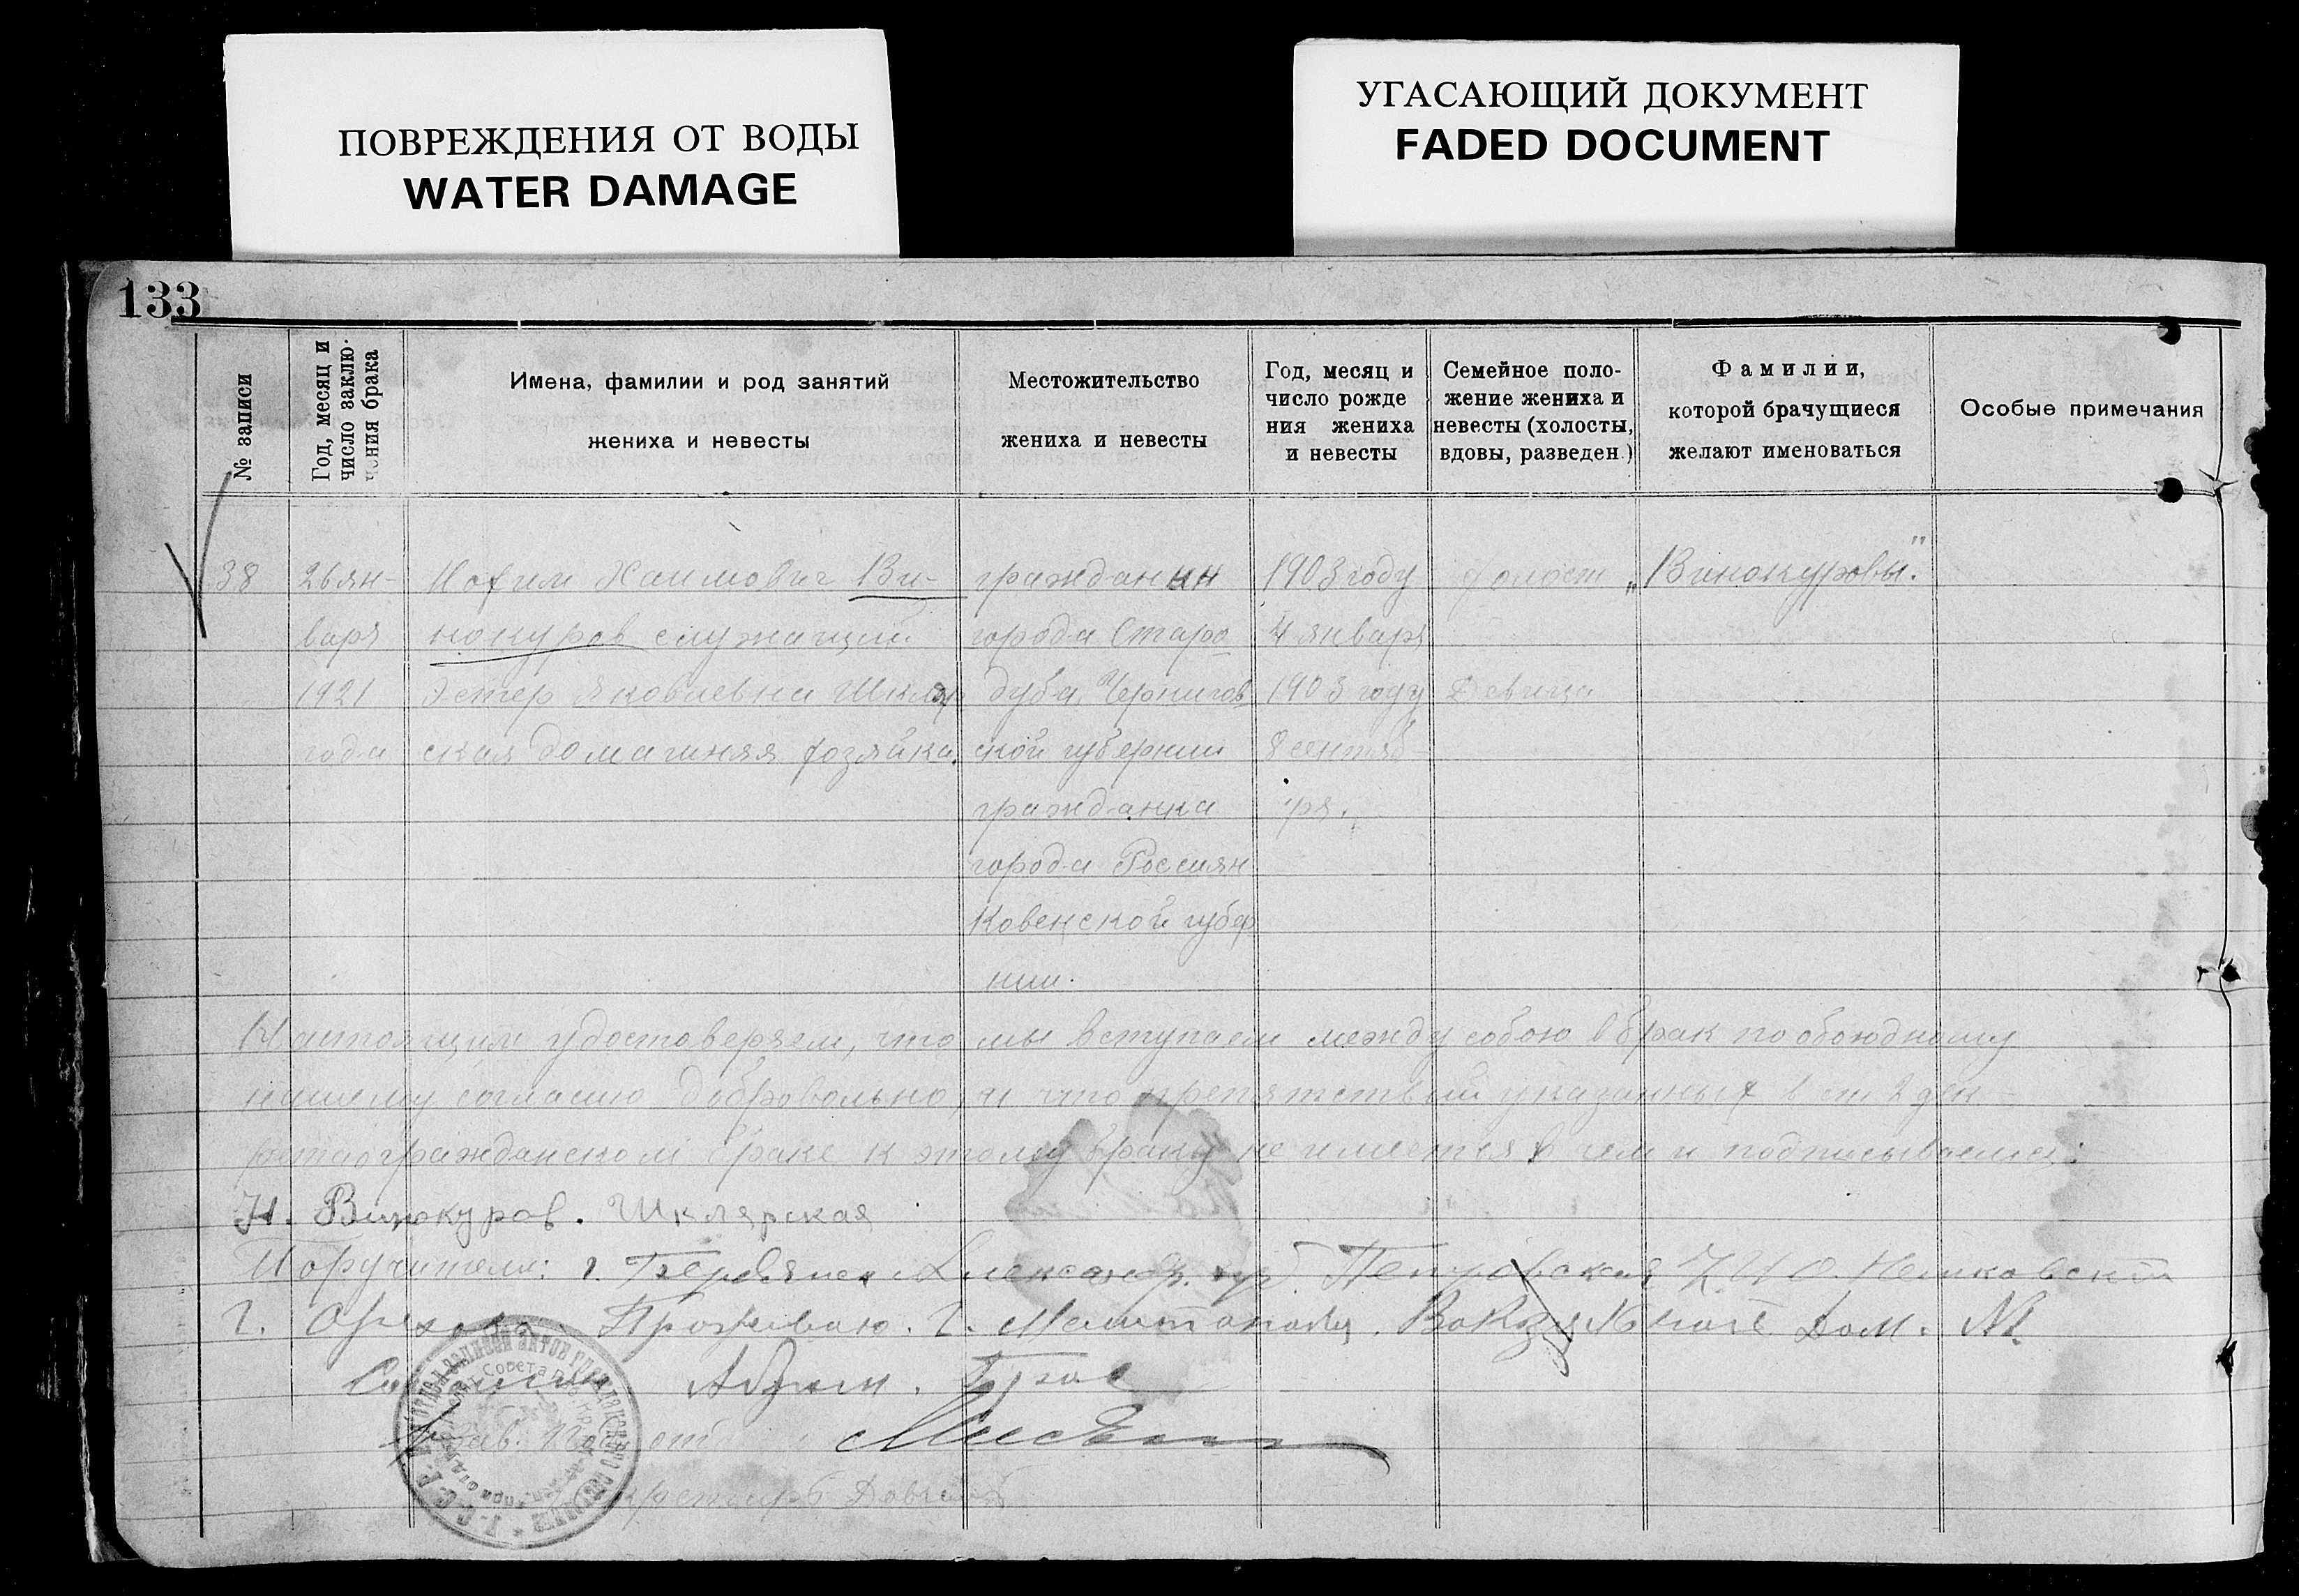 ПОВРЕЖДЕНИЯ ОТ ВОДЫ
WATER DAMAGE
УГАСАЮЩИЙ ДОКУМЕНТ
FADED DOCUMENT
133
№ записи
Год, месяц и
число заклю-
чения брака
Имена, фамилии и род занятий
жениха и невесты
Местожительство
жениха и невесты
Год, месяц и
число рожде
ния жениха
и невесты
Семейное поло-
жение жениха и
невесты (холосты,
вдовы, разведен.)
Фамилии,
которой брачущиеся
желают именоваться
Особые примечания
38
26 ян-
варя
1921
года
Нохим Хаимович Ви-
нокуров служащий
Эстер Яковлевна Шкляр
ская домашняя хозяйка.
гражданин
города Старо
дуба, Чернигов
ской губернии
гражданка
города Россиян
Ковенской губер
нии.
1903 году
4 января
1903 году
8 сентяб-
ря.
холост
Девица
„Винокуровы."
Настоящим удостоверяем, что мы вступаем между собою в брак по обоюдному
нашему согласию добровольно, и что препятствий указанных в ст 2 дек
рета о гражданском браке к этому браку не имеется в чем и подписываемся:
Н. Винокуров. Шклярская
Поручители: 1. Александр.
Г. Орехов Проживаю. г. Дом. №
Зав.
Секретарь